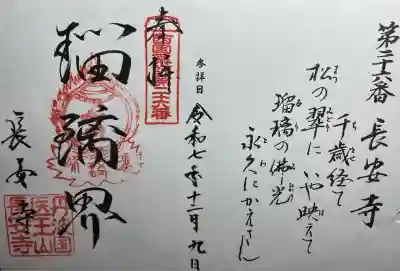 第二十六番 長安寺
千歳経て
松の翠に いや映えて
瑠璃の佛光
永久にかえさん
参拝日
令和七年十一月九日
奉拝
瑠璃界
長安寺
丹波国
医王山
長安寺